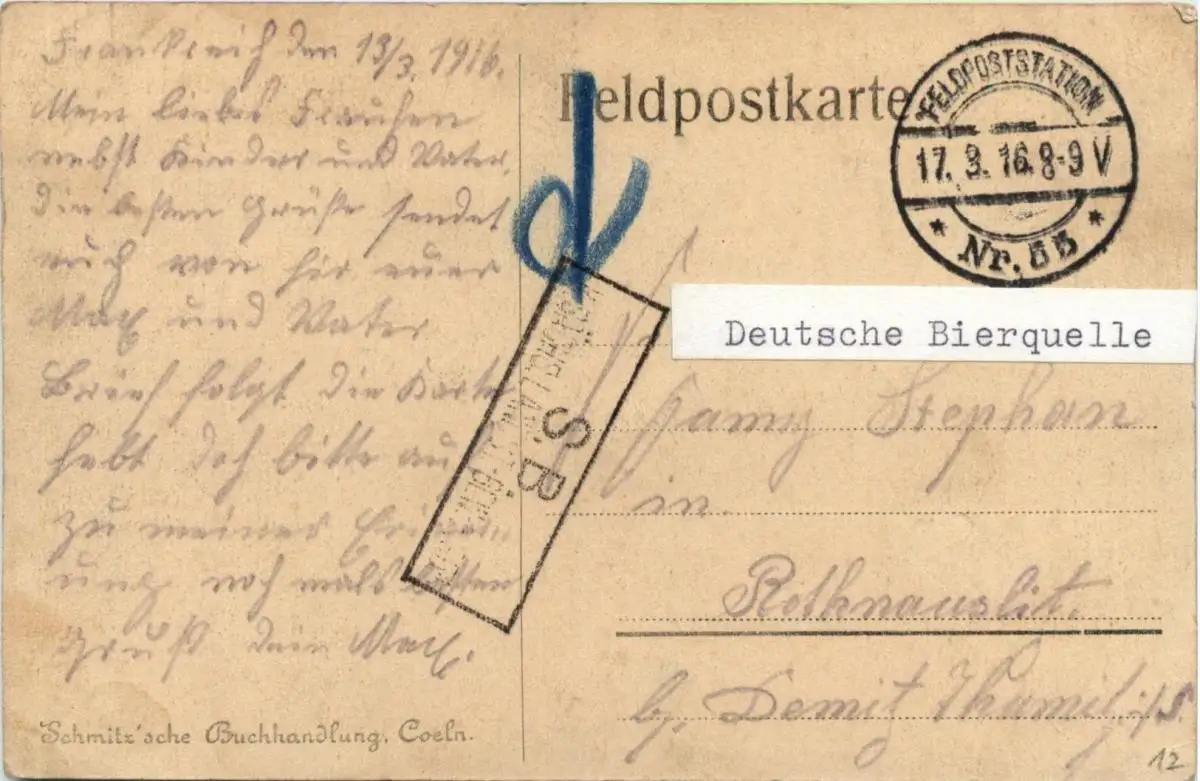 Frankreich den 13/3. 1916.
Mein liebes Frauchen
nebst Kinder und Vater,
die besten Grüße sendet
euch von hir euer
Max und Vater
Brief folgt die Karte
hebt doch bitte auf
zu meiner
ung noch mals besten
Gruß dein Max.
Schmitz'sche Buchhandlung, Coeln.
Feldpostkarte
FELDPOSTSTATION
17. 3. 16. 8-9 V
* Nr. 53 *
S B
Deutsche Bierquelle
Stephan
in
Rothnauslit.
b/. Demitz Thumitz i/S.
12